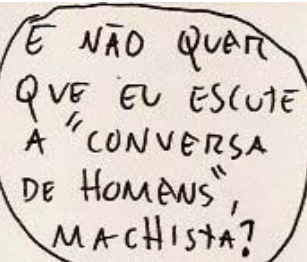 E NÃO QUER
QUE EU ESCUTE
A "CONVERSA
DE HOMENS",
MACHISTA?